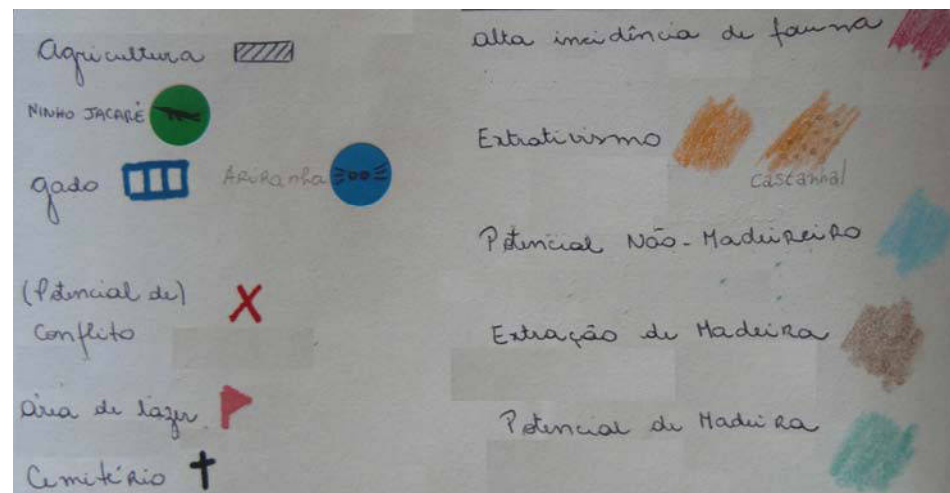 Agricultura
NINHO JACARÉ
gado
ARiRanha
(Potencial de)
Conflito
área de lazer
Cemitério
alta incidência de fauna
Extrativismo
castanhal
Potencial Não-Madeireiro
Extração de Madeira
Potencial de Madeira